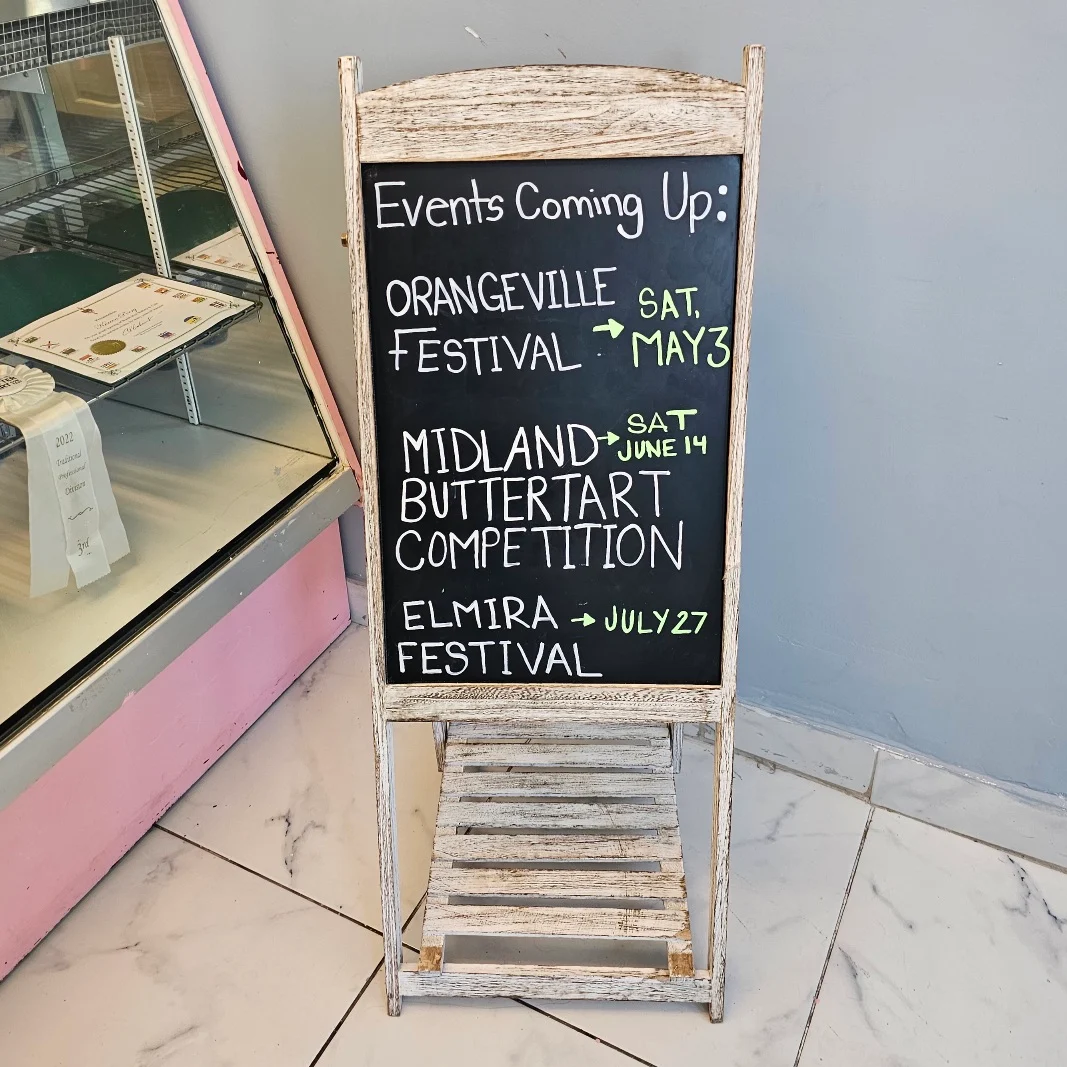 Events Coming Up:
ORANGEVILLE
FESTIVAL → SAT,
MAY 3
MIDLAND → SAT
JUNE 14
BUTTERTART
COMPETITION
ELMIRA → JULY 27
FESTIVAL
2022
Traditional
Professional
Division
3rd